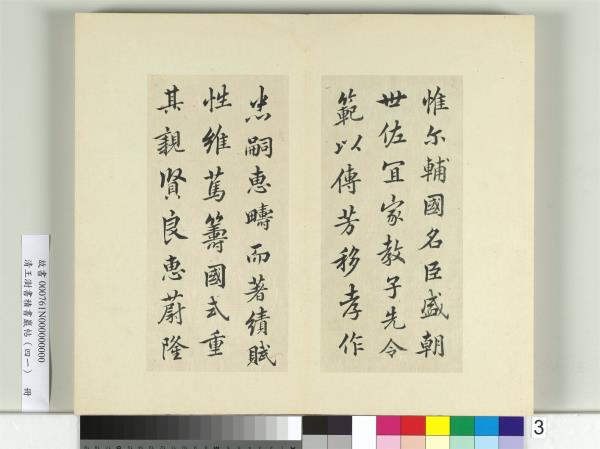 惟尓輔國名臣盛朝
世佐宜家教子先令
範以傳芳移孝作
忠嗣惠疇而著績賦
性維篤籌國式重
其親賢良惠蔚隆
故書 000761N000000000
清王澍書積書巖帖（四一） 冊
3